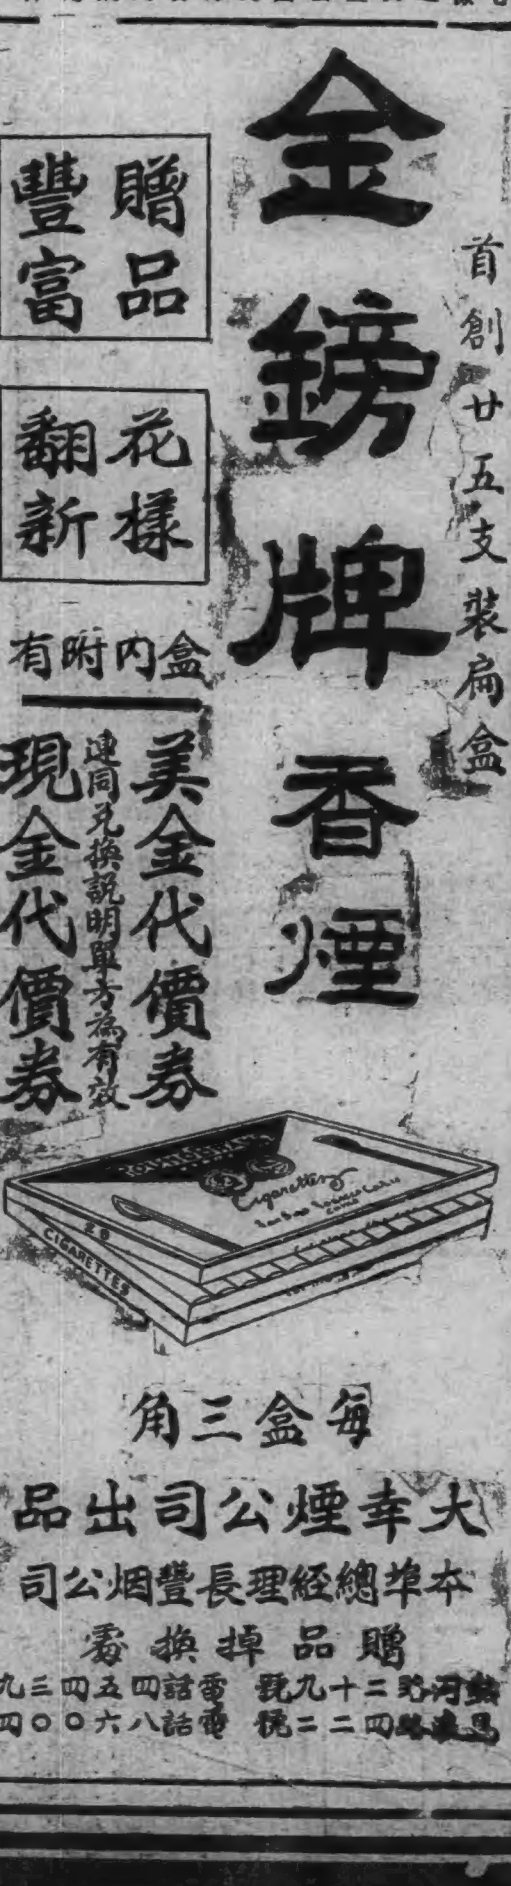 首創廿五支裝扁盒
金鎊牌香煙
贈品
豐富
花樣
翻新
盒內附有
美金代價券
連同兌換說明單方為有效
現金代價券
Cigarettes
20
CIGARETTES
每盒三角
大幸煙公司出品
本埠總經理長豐烟公司
贈品掉換處
河路二十九號 電話四五四三九
路四二二號 電話八六〇〇四